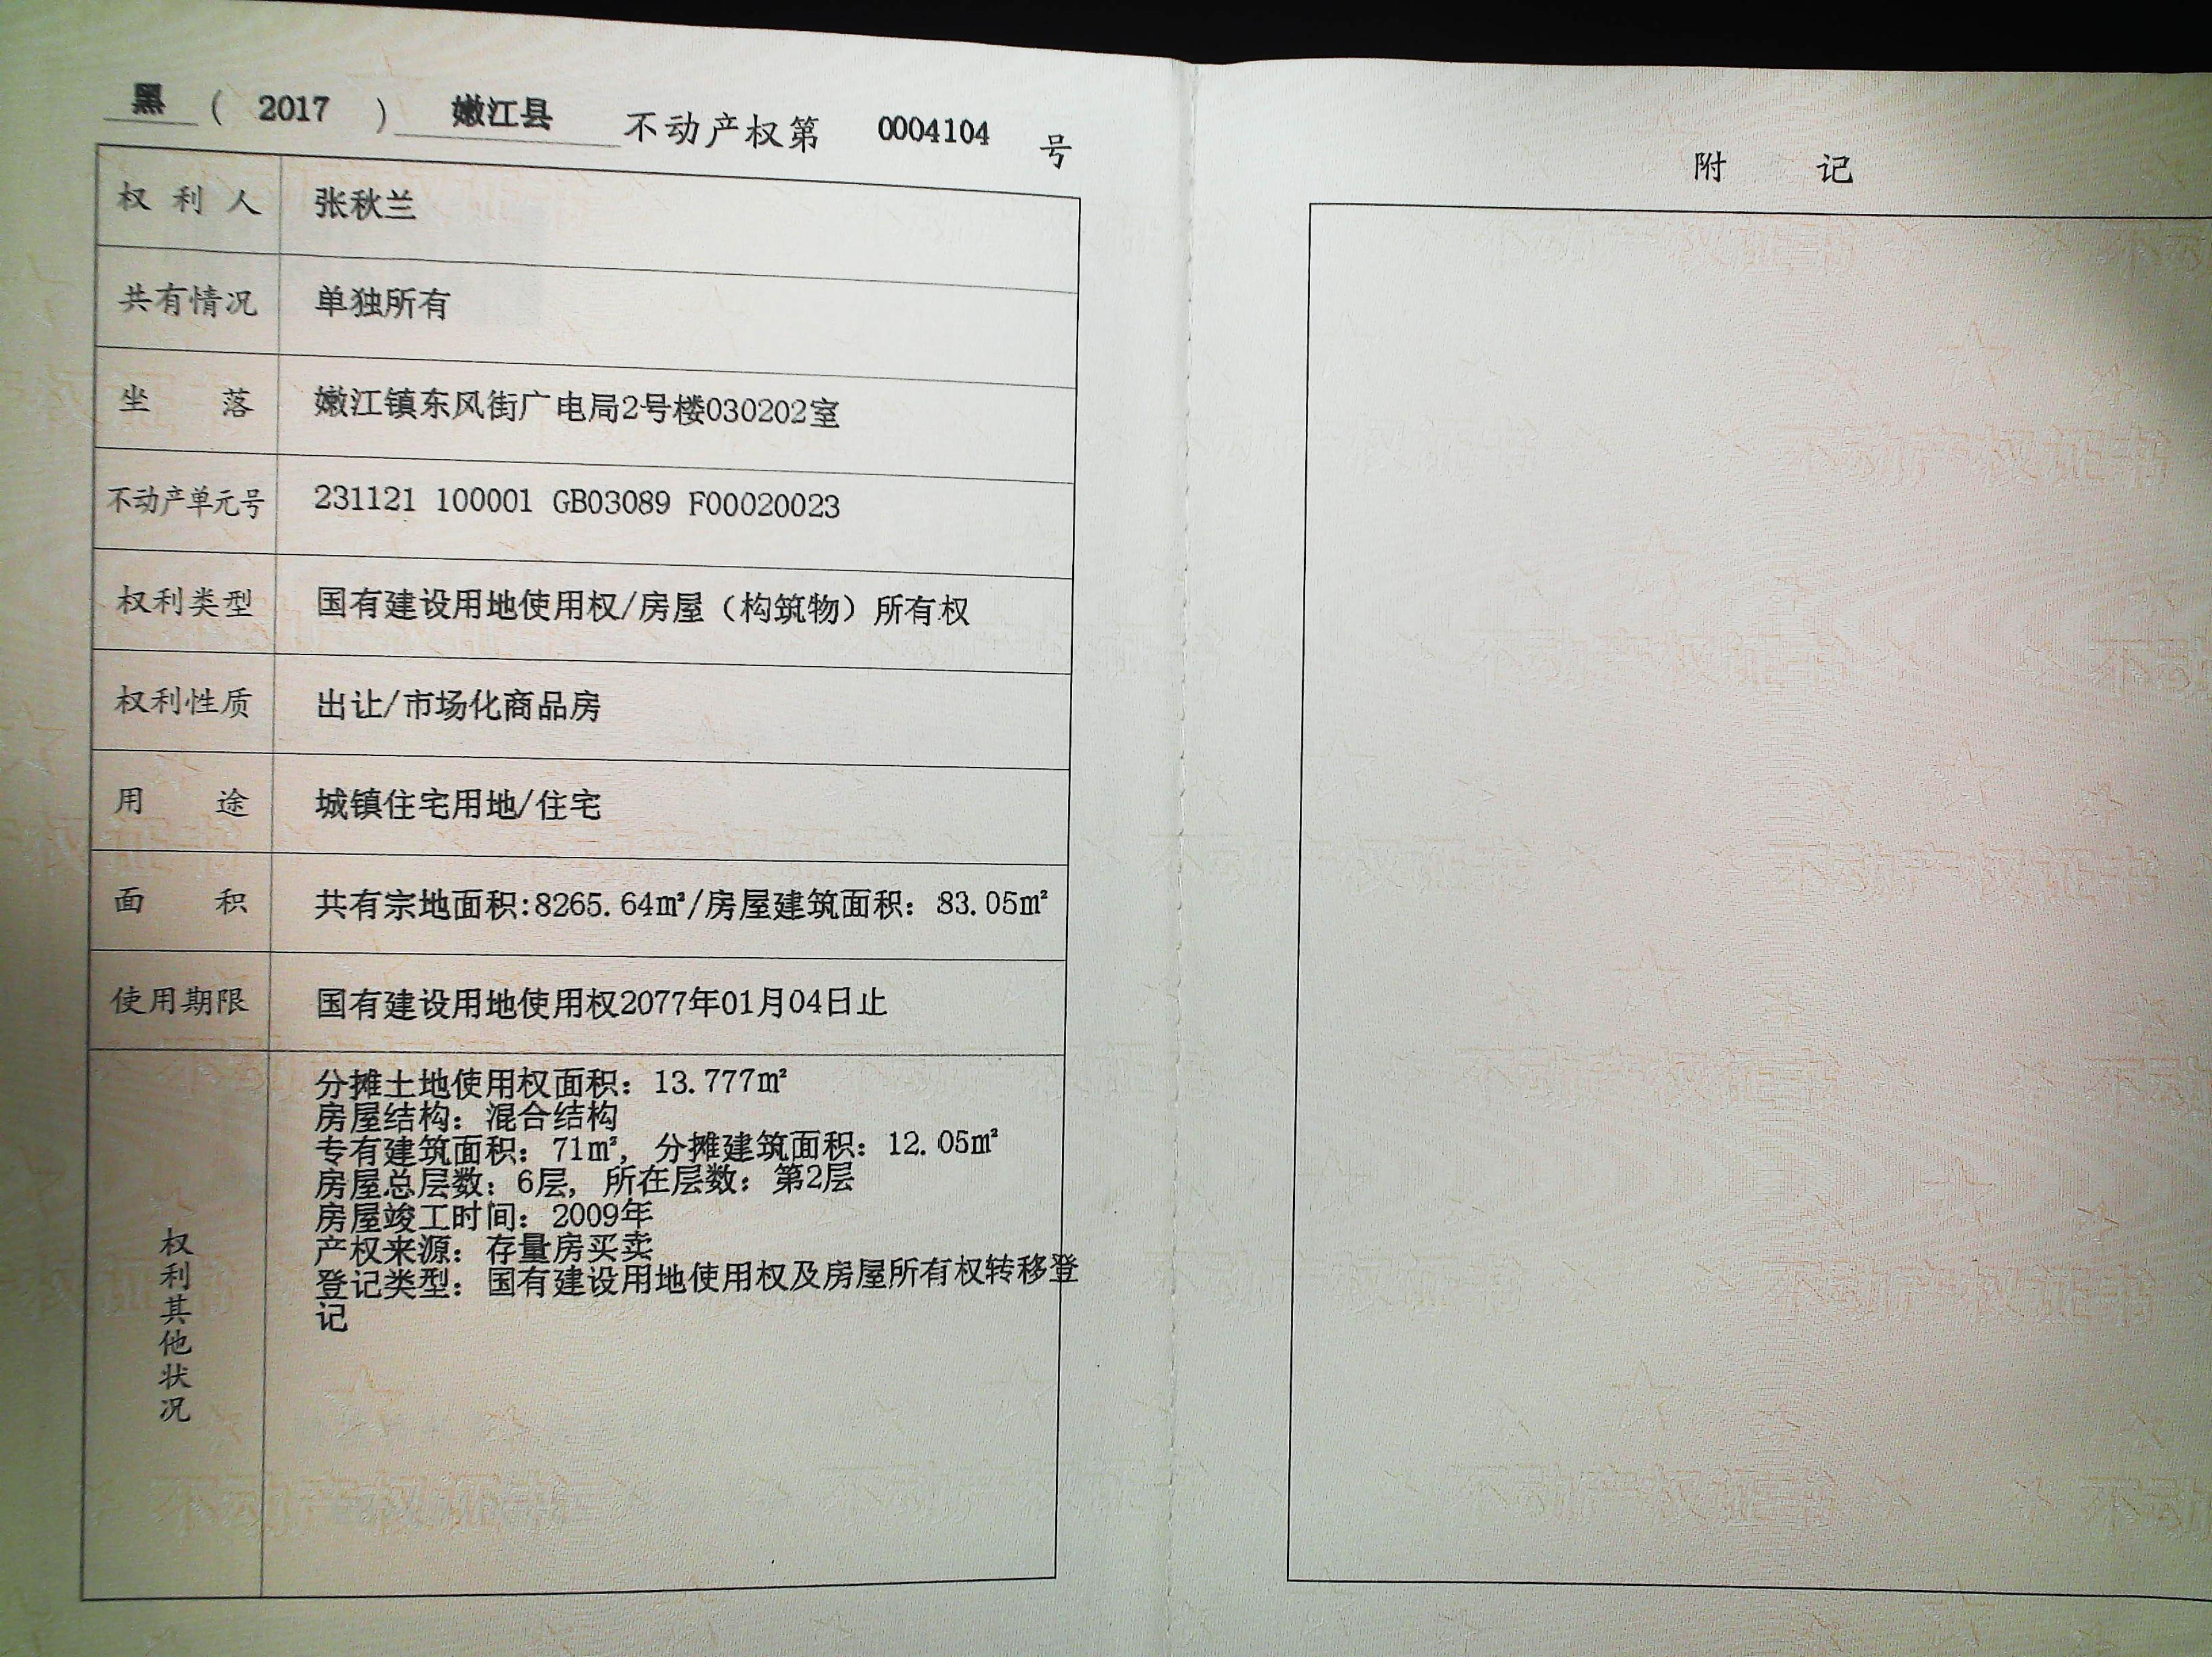 黑（2017）嫩江县 不动产权第 0004104 号
权利人 张秋兰
共有情况 单独所有
坐落 嫩江镇东风街广电局2号楼030202室
不动产单元号 231121 100001 GB03089 F00020023
权利类型 国有建设用地使用权/房屋（构筑物）所有权
权利性质 出让/市场化商品房
用途 城镇住宅用地/住宅
面积 共有宗地面积:8265.64㎡/房屋建筑面积：83.05㎡
使用期限 国有建设用地使用权2077年01月04日止
权利其他状况
分摊土地使用权面积：13.777㎡
房屋结构：混合结构
专有建筑面积：71㎡，分摊建筑面积：12.05㎡
房屋总层数：6层，所在层数：第2层
房屋竣工时间：2009年
产权来源：存量房买卖
登记类型：国有建设用地使用权及房屋所有权转移登
记
附记